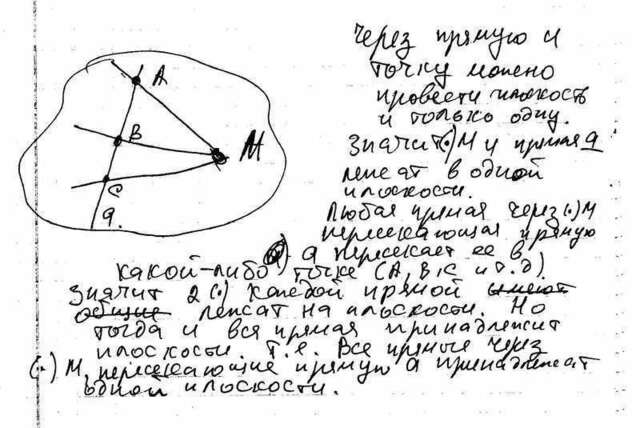 A
B
C
M
a.
Через прямую и
точку можно
провести плоскость
и только одну.
Значит (·) M и прямая a
лежат в одной
плоскости.
Любая прямая через (·) M
пересекающая прямую
a пересекает ее в
какой-либо точке (A, B, C и т.д).
Значит 2 (·) каждой прямой имеют
общие лежат на плоскости. Но
тогда и вся прямая принадлежит
плоскости. Т.е. Все прямые через
(·) M, пересекающие прямую a принадлежат
одной плоскости.